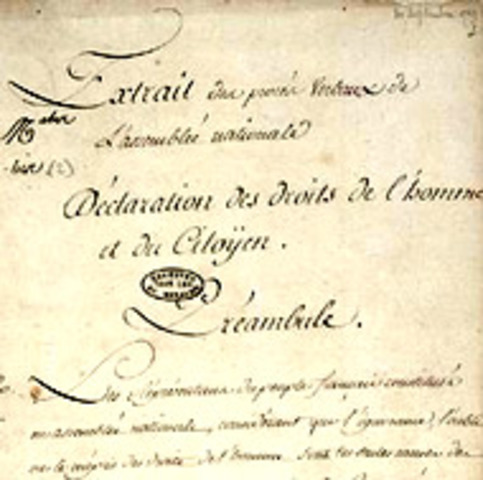 Extrait des procès Verbaux de
L'assemblée nationale
Déclaration des droits de l'homme
et du Citoÿen.
Préambule.
Les Représentans du peuple françois constitués
en assemblée nationale, considérant que l'ignorance, l'oubli
ou le mépris des droits de l'homme sont les seules causes des